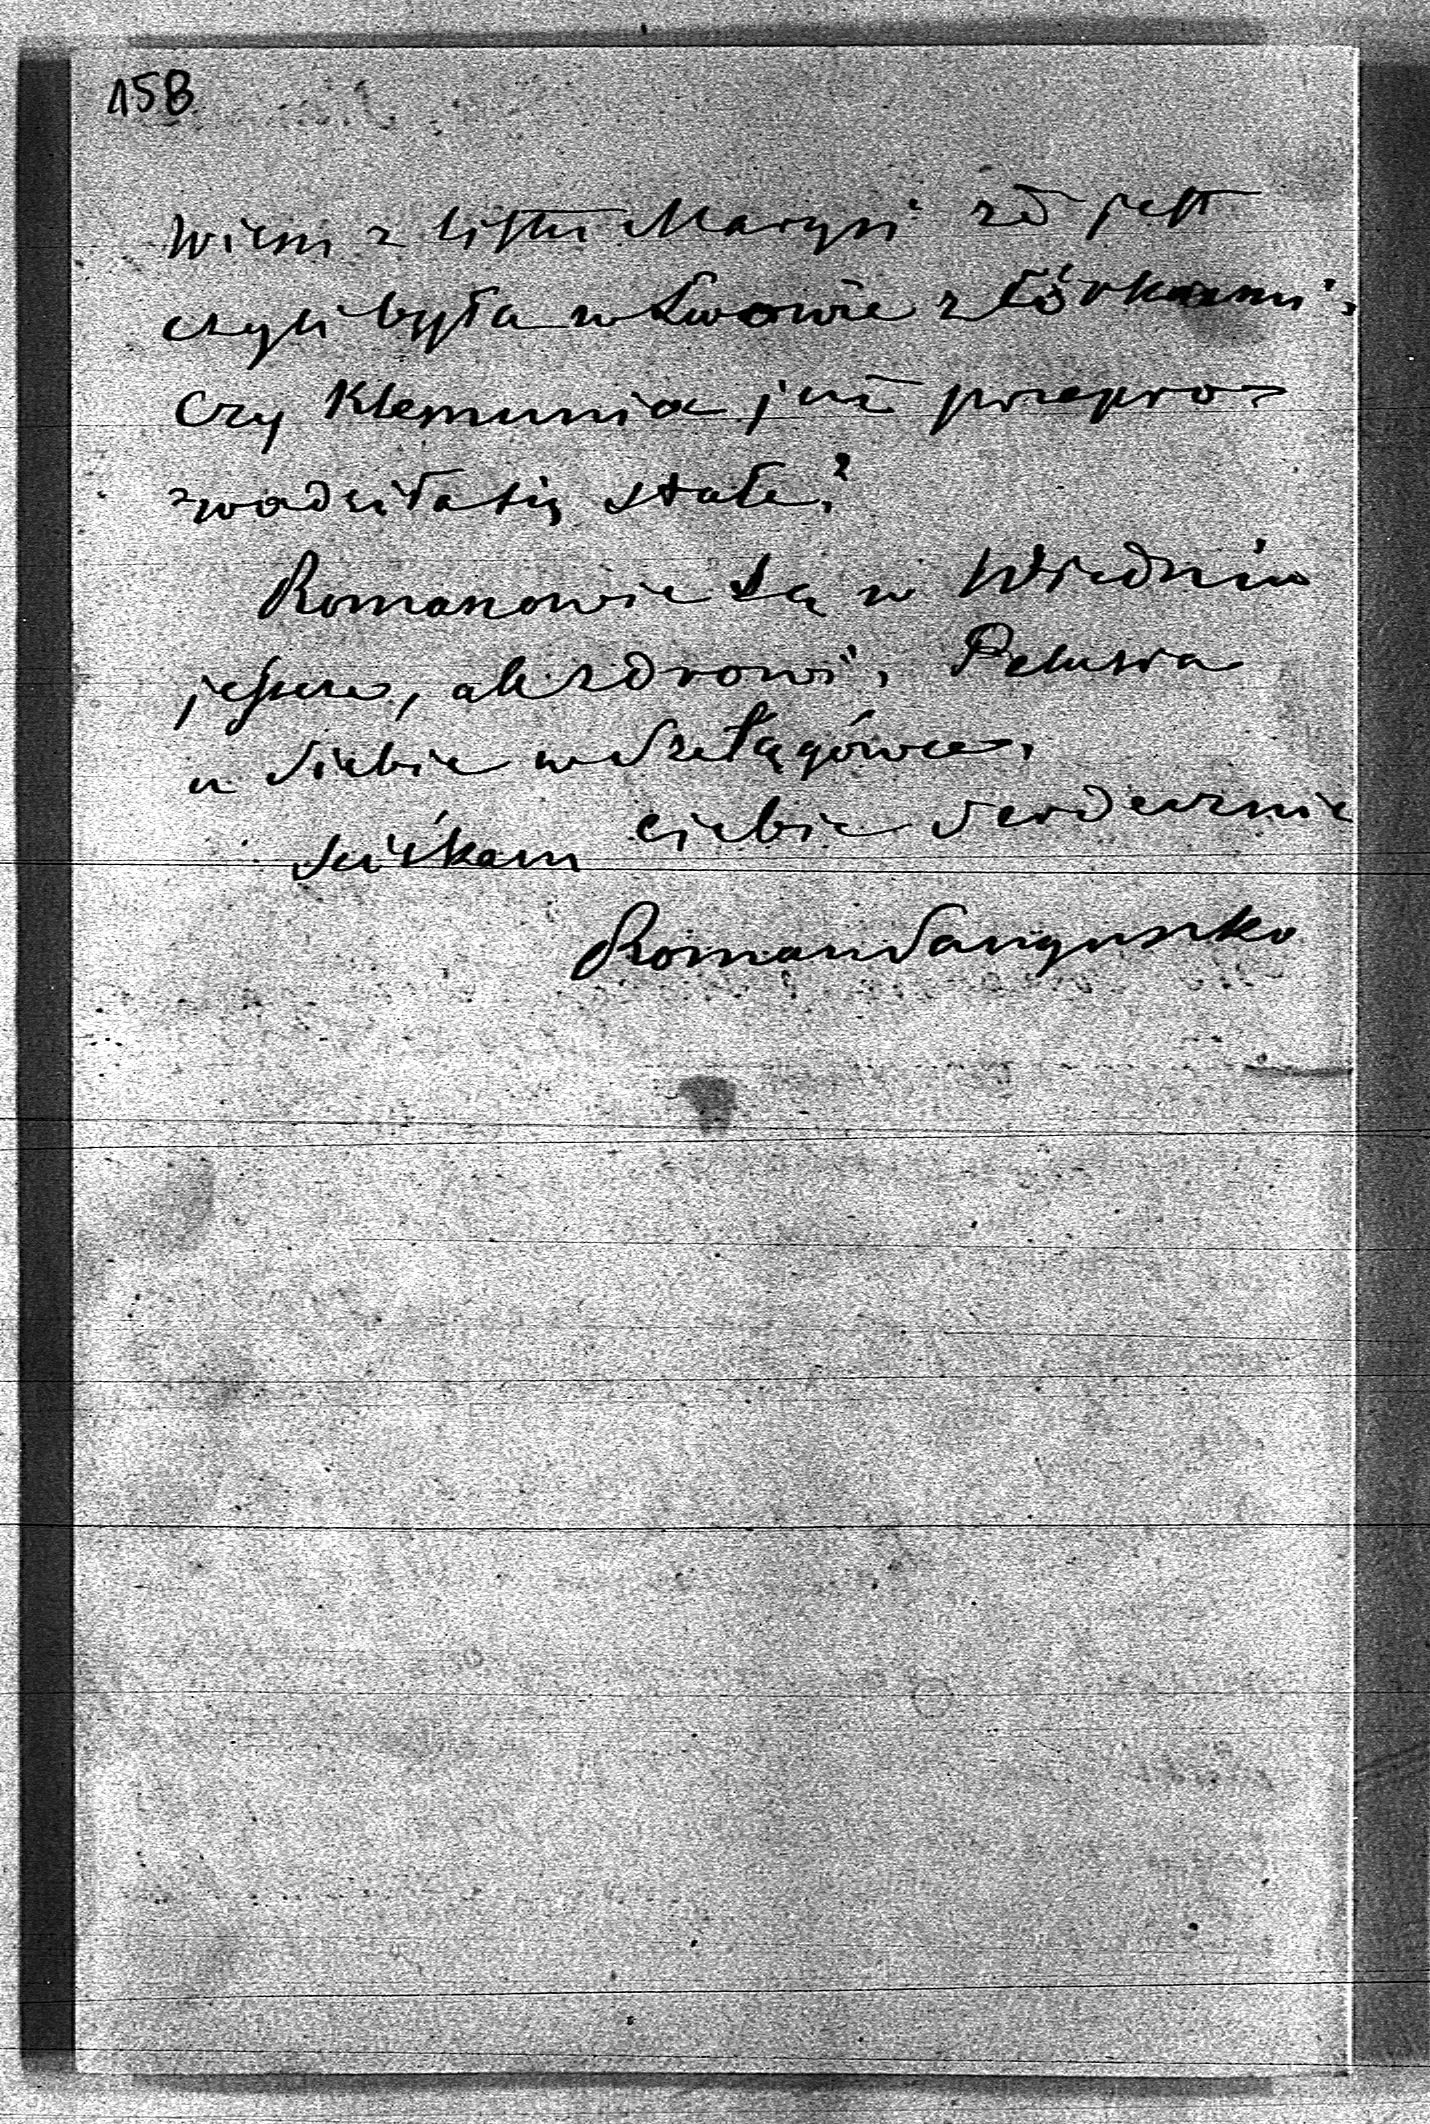 158
Wiem z listu Marysi że jest
czyli była w Lwowie z córkami,
Czy Klemunia już przepro-
wadziła się stale?
Romanowie są w Wiedniu
jeszcze, ale zdrowi,
u siebie w Szelągówce,
ściskam ciebie serdecznie
Roman Sanguszko